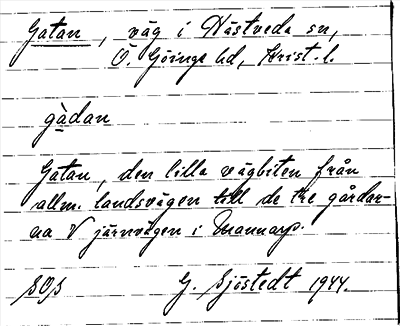 Gatan, väg i Hästveda sn,
Ö. Göinge hd, Krist. l.
gàdan
Gatan, den lilla vägbiten från
allm. landsvägen till de tre gårdar-
na V järnvägen i Mannarp.
SOS G. Sjöstedt 1944.